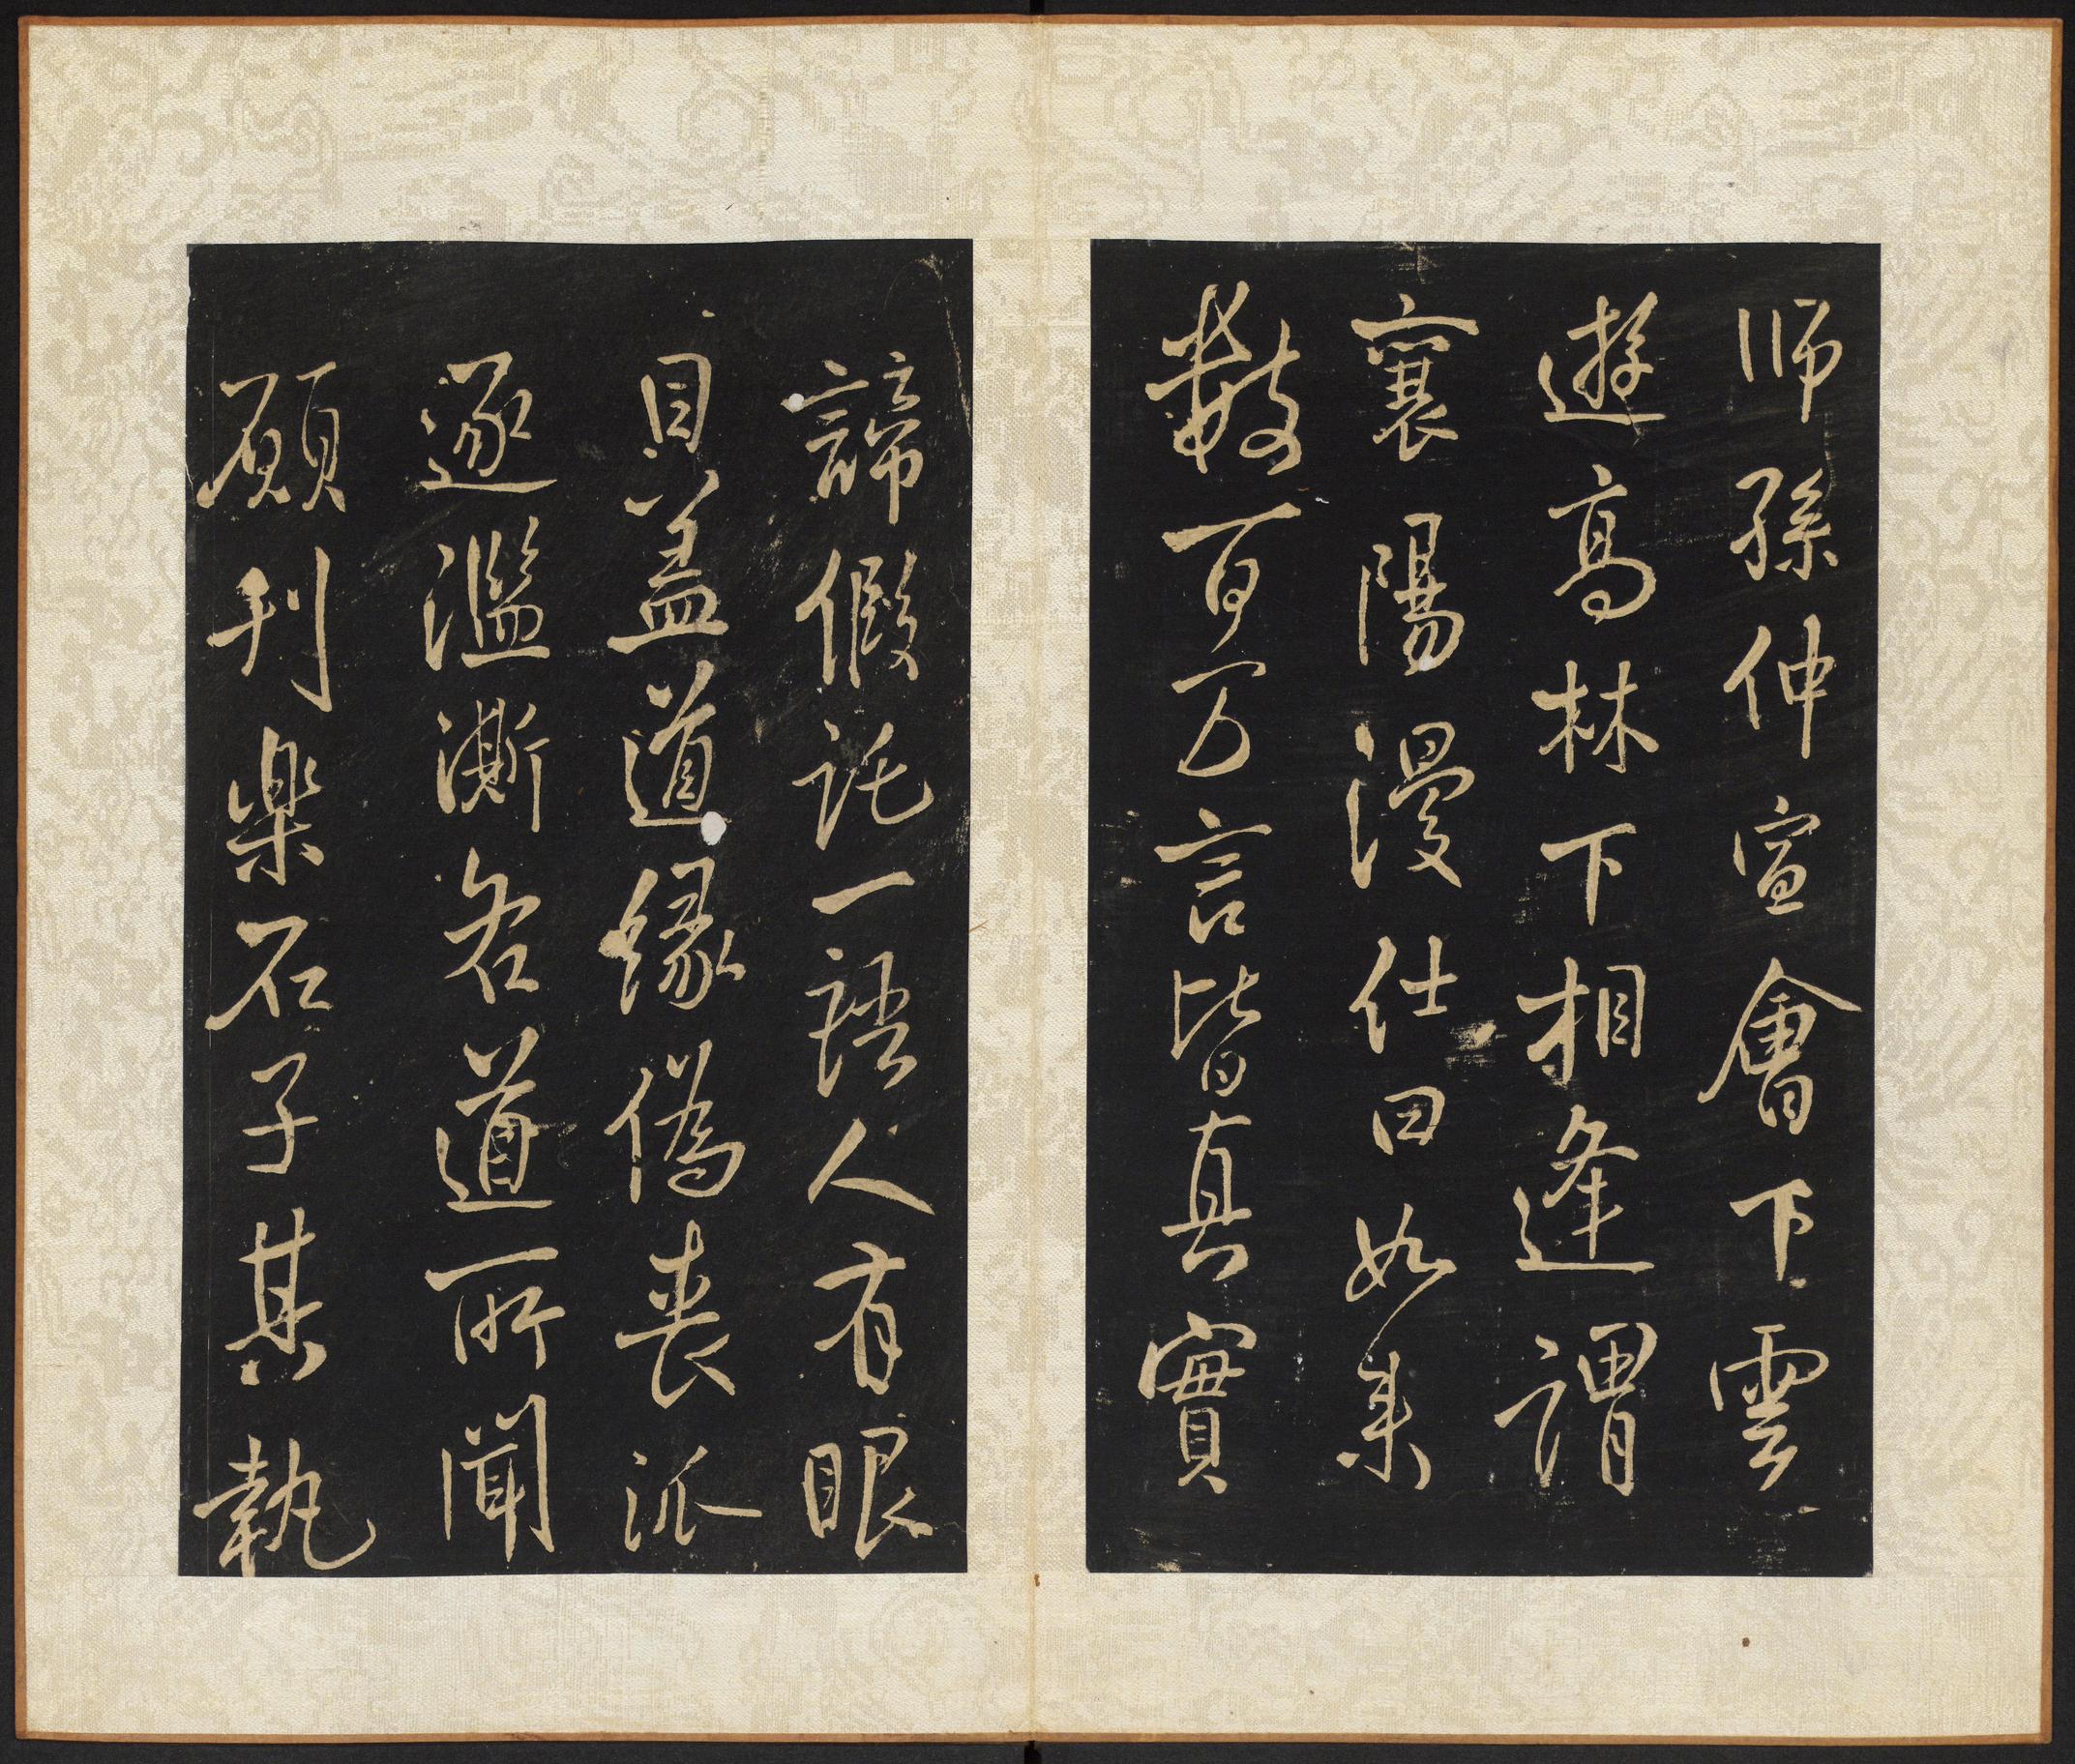 師孫仲宣會下雲
遊高林下相逢謂
襄陽漫仕曰如来
數百万言皆真實
諦假託一語人有眼
目盖道緣偽喪派
逐濫澌名道所聞
願刊樂石子某執